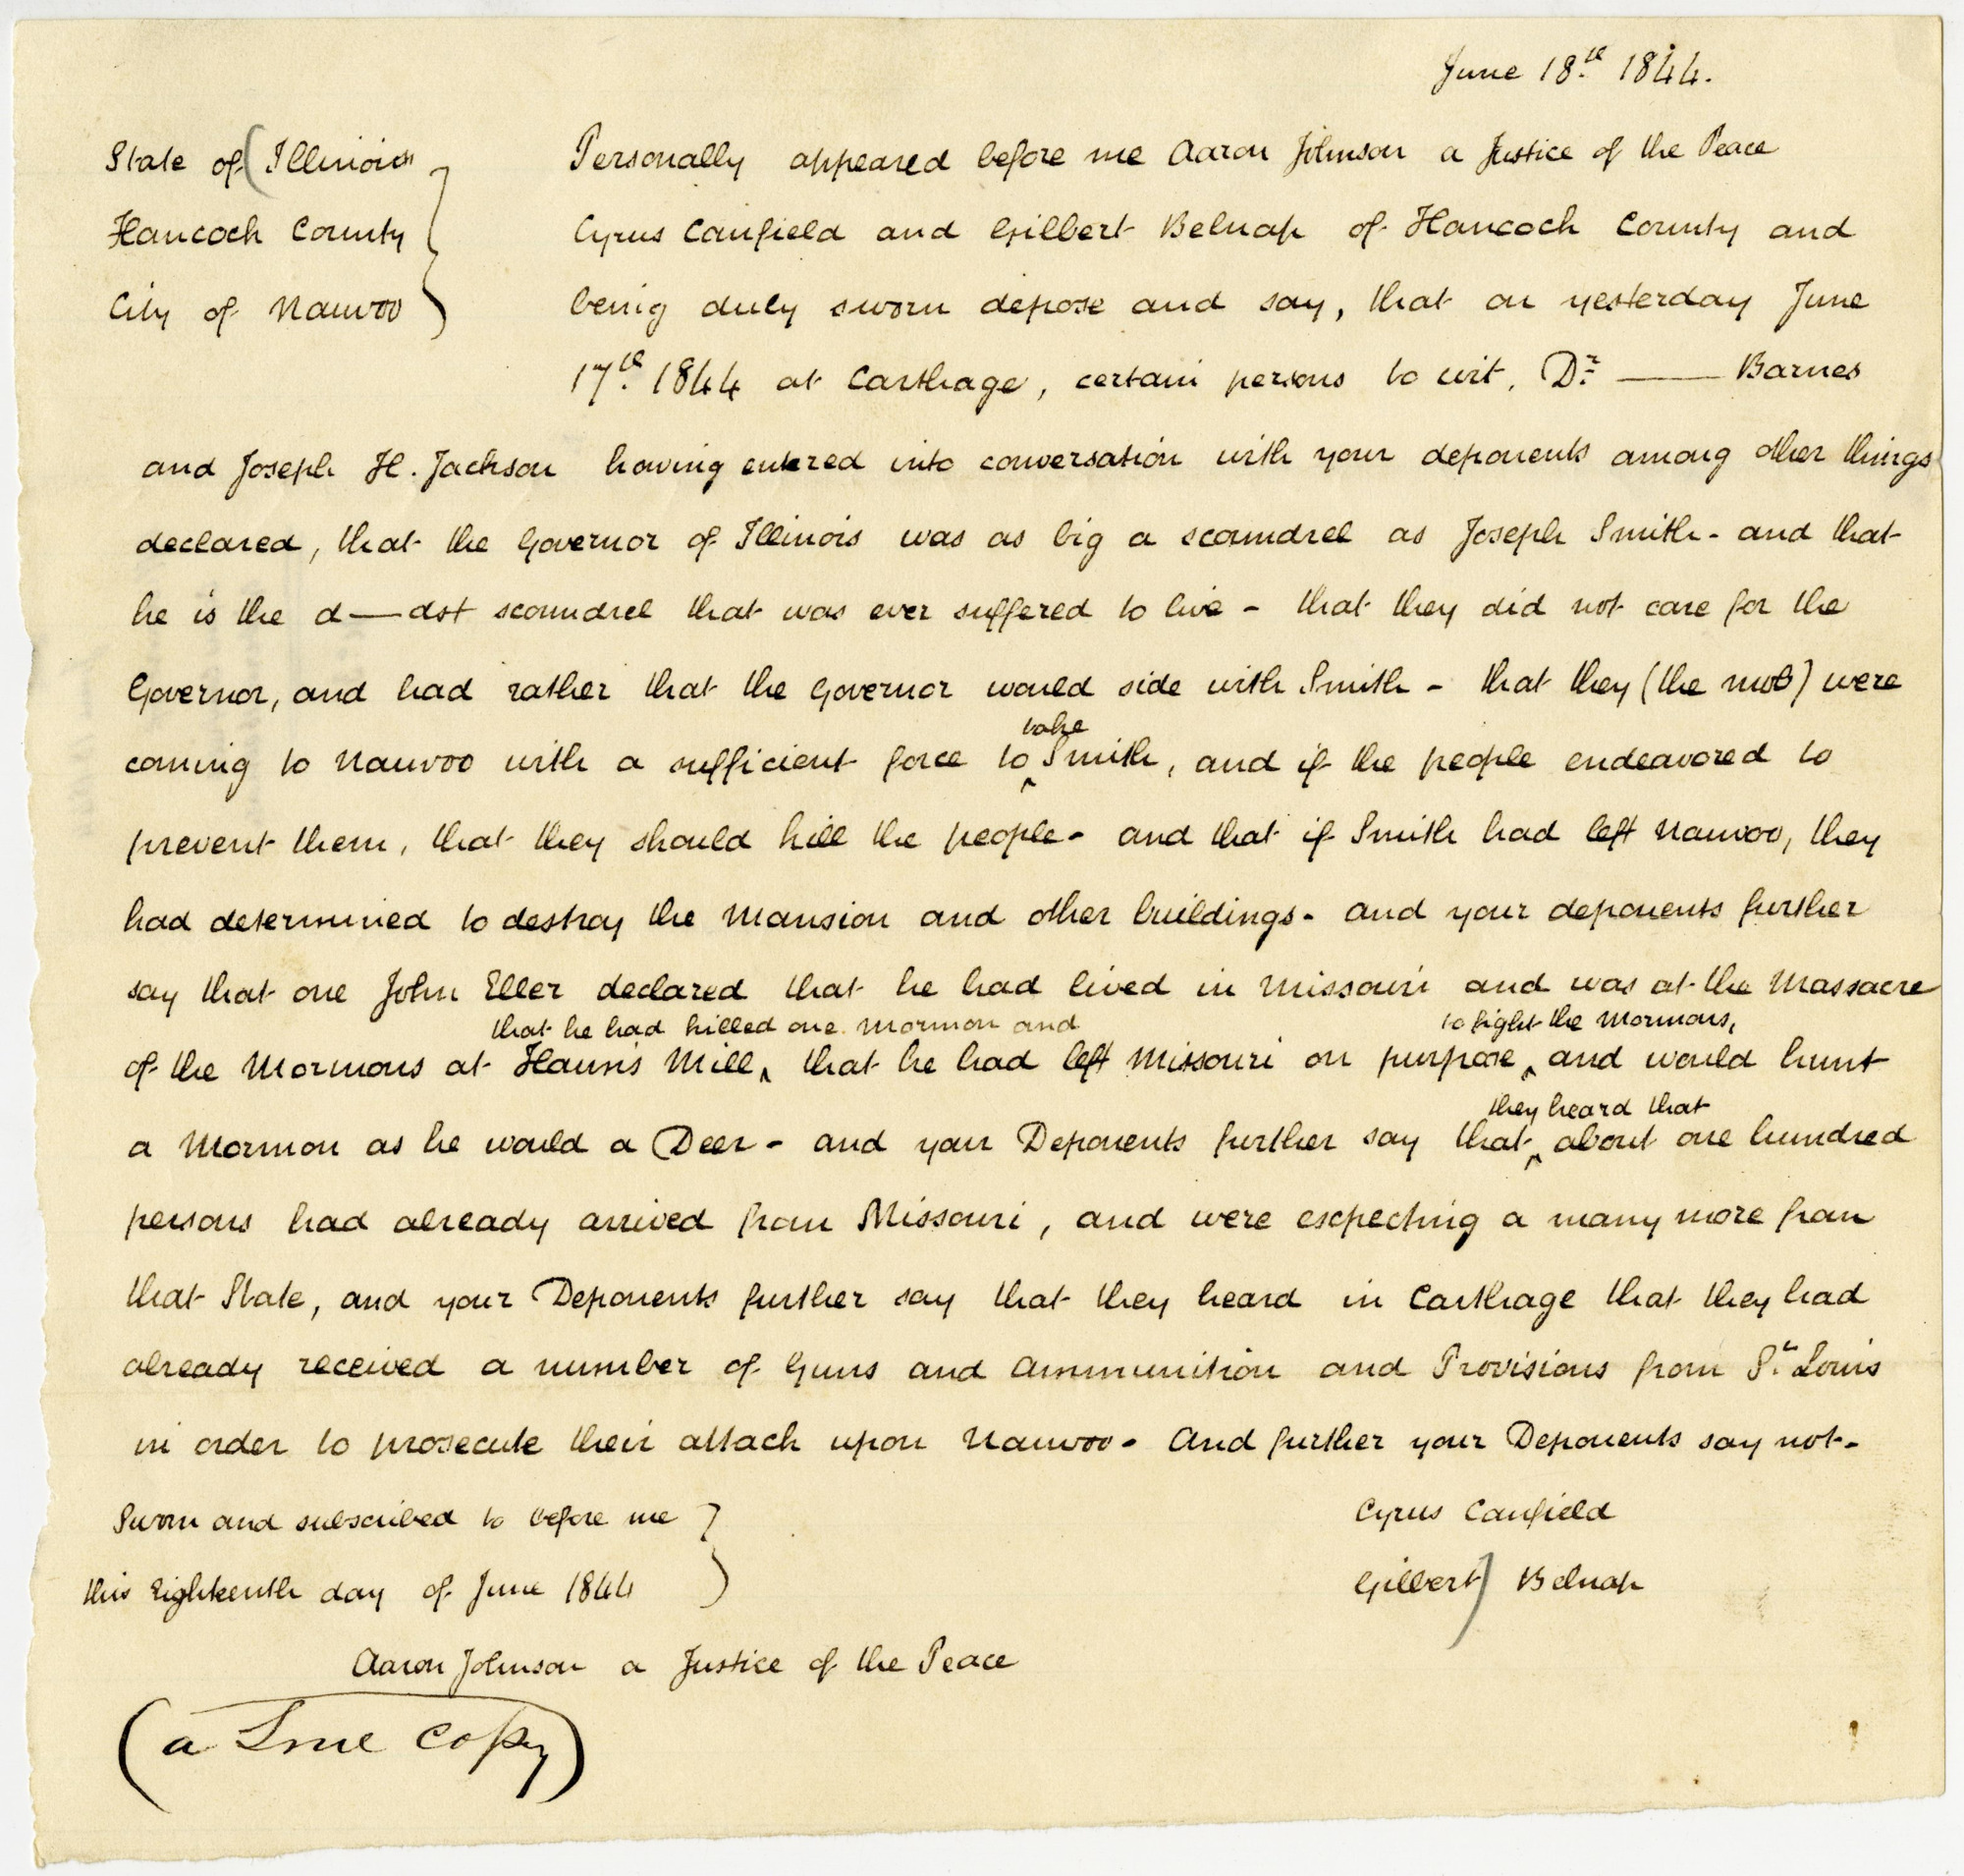 June 18.th 1844.
State of (Illinois
Hancock County
City of Nauvoo
Personally appeared before me Aaron Johnson a Justice of the Peace
Cyrus Canfield and Gilbert Belnap of Hancock County and
being duly sworn depose and say, that on yesterday June
17.th 1844 at Carthage, certain persons to wit, Dr. —— Barnes
and Joseph H. Jackson having entered into conversation with your deponents among other things
declared, that the Governor of Illinois was as big a scoundrel as Joseph Smith - and that
he is the d—dst scoundrel that was ever suffered to live - that they did not care for the
Governor, and had rather that the Governor would side with Smith - that they (the mob) were
take
coming to Nauvoo with a sufficient force to ‸ Smith, and if the people endeavored to
prevent them, that they should kill the people - and that if Smith had left Nauvoo, they
had determined to destroy the Mansion and other buildings - and your deponents further
say that one John Eller declared that he had lived in Missouri and was at the Massacre
that he had killed one Mormon and to fight the Mormons,
of the Mormons at Hauns Mill, ‸ that he had left Missouri on purpose ‸ and would hunt
they heard that
a Mormon as he would a Deer - and your Deponents further say that ‸ about one hundred
persons had already arrived from Missouri, and were expecting a many more from
that State, and your Deponents further say that they heard in Carthage that they had
already received a number of Guns and Ammunition and Provisions from St. Louis
in order to prosecute their attack upon Nauvoo - And further your Deponents say not -
Sworn and subscribed to before me
this Eighteenth day of June 1844
Cyrus Canfield
Gilbert) Belnap
Aaron Johnson a Justice of the Peace
(a True Copy)